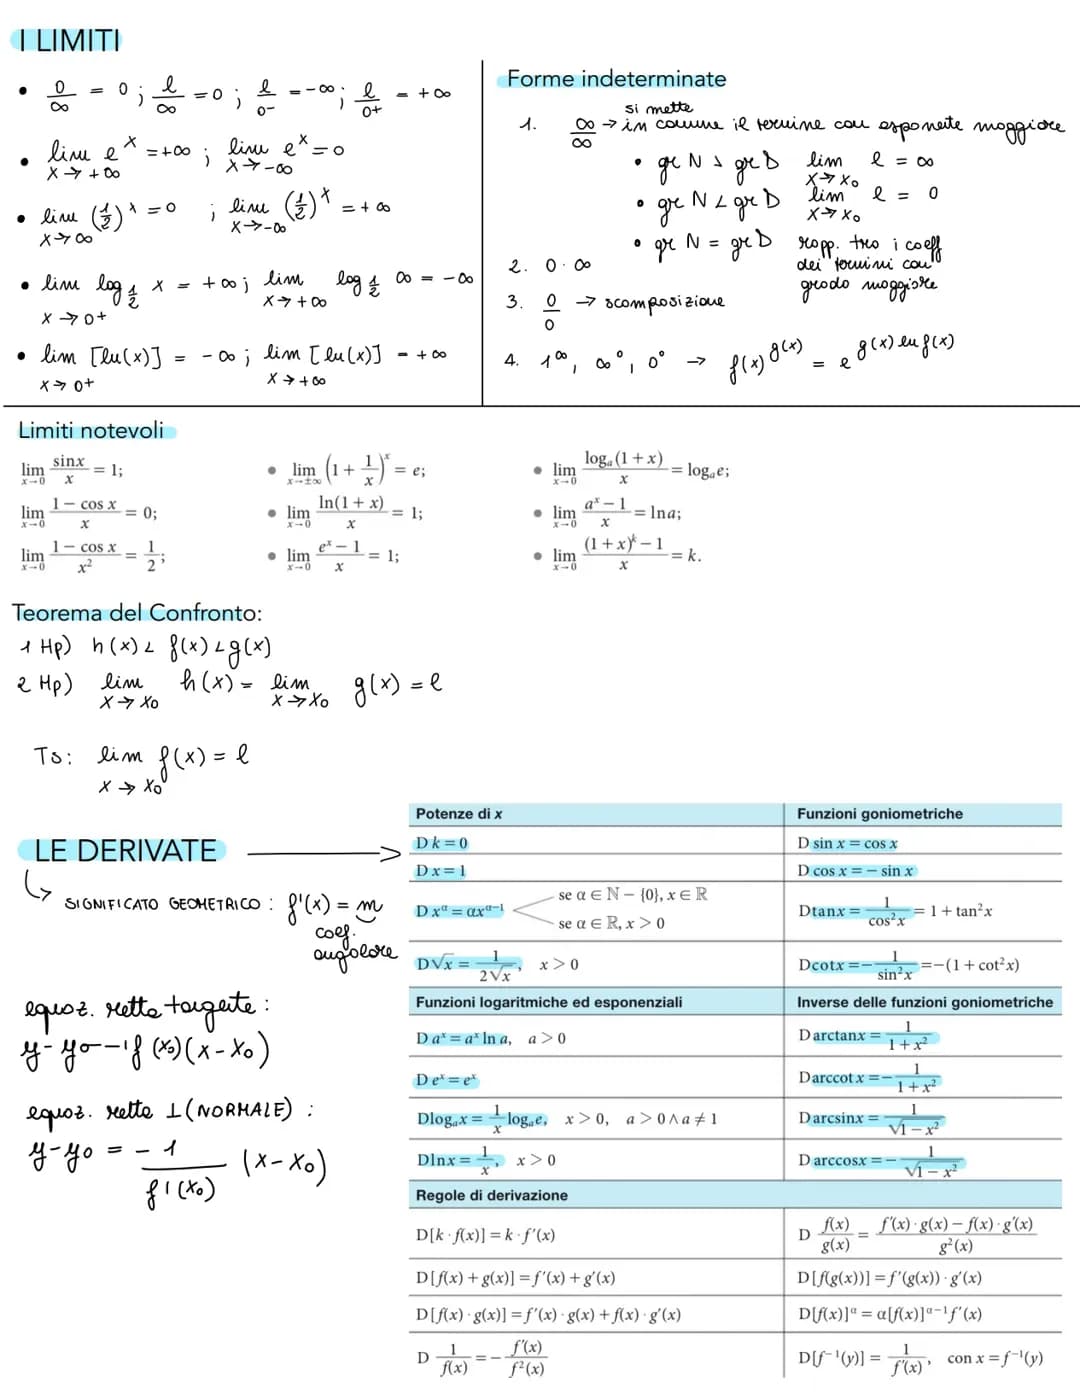 I LIMITI
• 0/∞ = 0 ; l/∞ = 0 ; l/0- = -∞ ; l/0+ = +∞
• lim x→+∞ e^x = +∞ ; lim x→-∞ e^x = 0
• lim x→∞ (1/2)^x = 0 ; lim x→-∞ (1/2)^x = +∞
• lim x→0+ log 1/2 x = +∞ ; lim x→+∞ log 1/2 ∞ = -∞
• lim x→0+ [ln(x)] = -∞ ; lim x→+∞ [ln(x)] = +∞
Forme indeterminate
si mette
1. ∞/∞ → in comune il termine con esponente maggiore
• gr N > gr D lim x→x₀ l = ∞
• gr N < gr D lim x→x₀ l = 0
• gr N = gr D rapp. tra i coeff
dei termini con
grado maggiore
2. 0·∞
3. 0/0 → scomposizione
4. 1^∞, ∞^0, 0^0 → f(x)^g(x) = e^g(x) ln f(x)
Limiti notevoli
lim x→0 sinx/x = 1;
lim x→0 (1 − cos x)/x = 0;
lim x→0 (1 − cos x)/x² = 1/2;
• lim x→±∞ (1 + 1/x)^x = e;
• lim x→0 ln(1 + x)/x = 1;
• lim x→0 (e^x − 1)/x = 1;
• lim x→0 logₐ(1 + x)/x = logₐe;
• lim x→0 (a^x − 1)/x = lna;
• lim x→0 ((1 + x)^k − 1)/x = k.
Teorema del Confronto:
1 Hp) h(x) < f(x) < g(x)
2 Hp) lim x→x₀ h(x) = lim x→x₀ g(x) = l
Ts: lim x→x₀ f(x) = l
LE DERIVATE
SIGNIFICATO GEOMETRICO : f'(x) = m
coef.
angolare
equaz. retta tangente :
y-y₀ — 'f (x₀)(x-x₀)
equaz. retta ⊥ (NORMALE) :
y-y₀ = -1/f'(x₀) (x-x₀)
Potenze di x
D k = 0
D x = 1
D x^α = αx^(α−1)
se α ∈ ℕ − {0}, x ∈ ℝ
se α ∈ ℝ, x > 0
D√x = 1/(2√x), x > 0
Funzioni goniometriche
D sin x = cos x
D cos x = − sin x
Dtanx = 1/cos²x = 1 + tan²x
Dcotx = −1/sin²x = −(1 + cot²x)
Funzioni logaritmiche ed esponenziali
D a^x = a^x ln a, a > 0
D e^x = e^x
Dlogₐx = 1/x logₐe, x > 0, a > 0 ∧ a ≠ 1
Dlnx = 1/x, x > 0
Inverse delle funzioni goniometriche
D arctanx = 1/(1 + x²)
Darccot x = −1/(1 + x²)
D arcsinx = 1/√(1 − x²)
D arccosx = −1/√(1 − x²)
Regole di derivazione
D[k · f(x)] = k · f'(x)
D[f(x) + g(x)] = f'(x) + g'(x)
D[f(x) · g(x)] = f'(x) · g(x) + f(x) · g'(x)
D 1/f(x) = − f'(x)/f²(x)
D f(x)/g(x) = (f'(x) · g(x) − f(x) · g'(x))/g²(x)
D[f(g(x))] = f'(g(x)) · g'(x)
D[f(x)]^α = α[f(x)]^(α−1) f'(x)
D[f⁻¹(y)] = 1/f'(x), con x = f⁻¹(y)